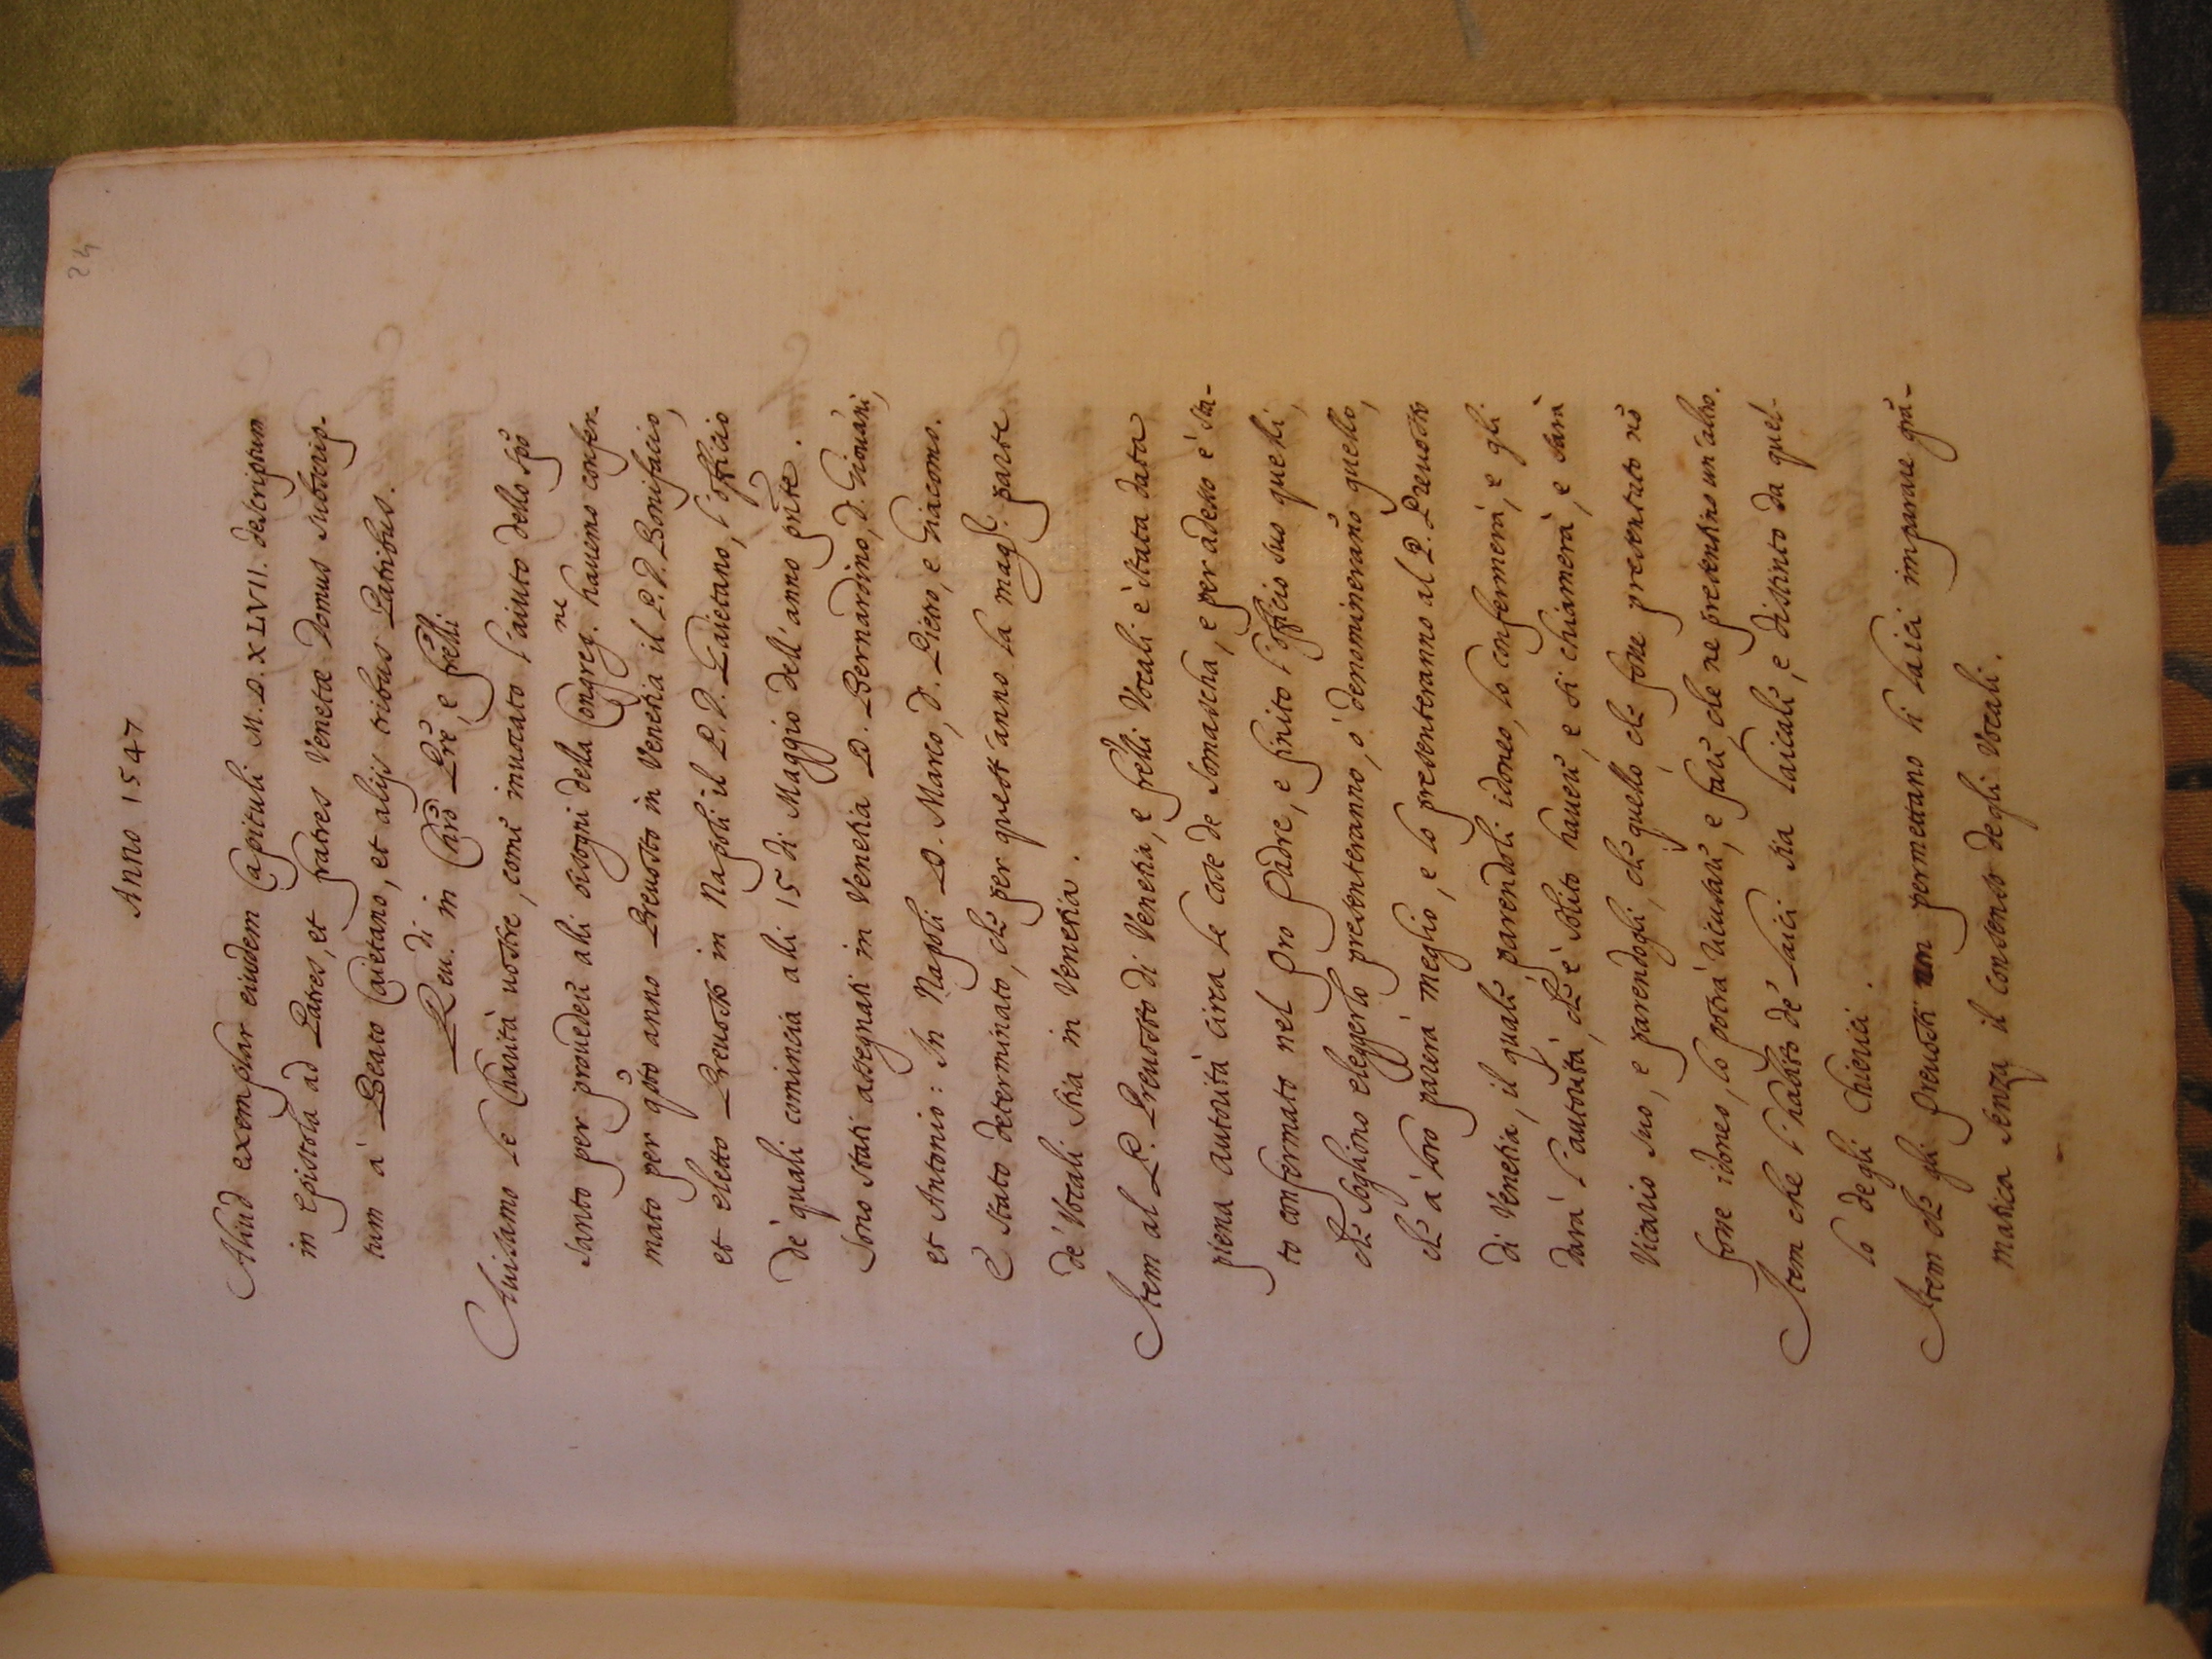 24
Anno 1547
Aliud exemplar eiusdem Capituli M.D.XLVII. descriptum
in Epistola ad Patres, et fratres Venetæ Domus subscrip-
tum à Beato Caietano, et alijs tribus Patribus.
Reu.di in Caro Pre, e frelli
Auisamo le Charità uostre, come inuocato l'aiuto dello Spõ
santo per prouedere alli bisogni della Congreg.ne hauemo confer-
mato per q̃sto anno Preuosto in Venetia il P. D. Bonifacio,
et eletto Preuosto in Napoli il P. D. Gaietano, l'officio
de' quali comincia alli 15 di Maggio dell'anno pñte.
Sono stati assegnati in Venetia D. Bernardino, D. Giouãni,
et Antonio: In Napoli D. Marco, D. Pietro, e Giacomo.
È stato determinato, che per quest'anno la mag.r parte
de' Vocali sia in Venetia.
Item al P. Preuosto di Venetia, e frelli Vocali è stata data
piena autorità circa le cose de Somascha, e per adesso è sta-
to confermato nel suo Padre, e finito l'officio suo quelli,
che sogliono eleggerlo presenteranno, ò denominerano quello,
che à loro parerà meglio, e lo presenteranno al P. Preuosto
di Venetia, il quale parendoli idoneo, lo confermerà, e gli
darà l'autorità, che è solito hauere, e si chiamerà, e sarà
Vicario suo, e parendogli, che quello, che fosse presentato nõ
fosse idoneo, lo potrà ricusare, e fare, che ne presentino un'altro.
Item che l'habito de' laici sia laicale, e distinto da quel-
lo degli Chierici.
Item che gli Preuosti non permettano li laici imparare grã-
matica senza il consenso degli Vocali.